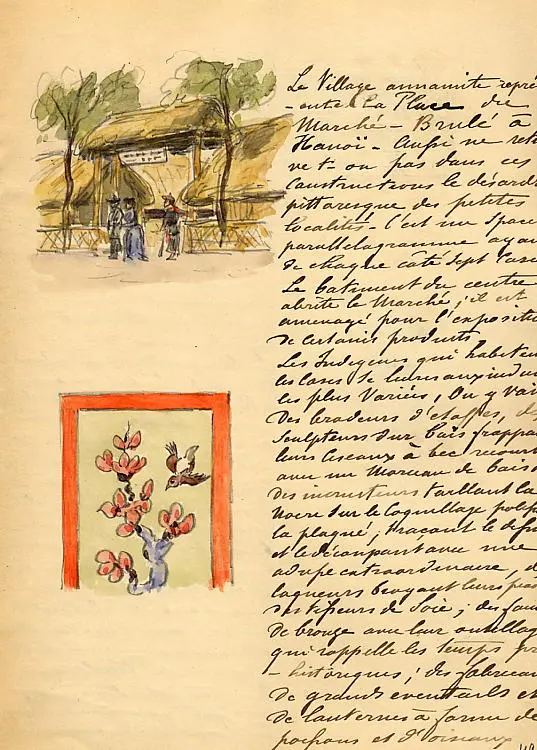 Le Village annamite repré
-ente la Place du
Marché - Brulé à
Hanoï - Aussi ne retr
ve t- on pas dans ces
Constructions le désord
pittoresque des petites
localités - C'est un space
parallelogramme aya
de chaque côté sept case
Le batiment du centre
abrite le Marché ; il est
amenagé pour l'expositi
de certains produits
Les Indigènes qui habiten
les cases se livrent aux indu
les plus Variées, On y Voi
Des brodeurs d'etoffes, de
Sculpteurs sur bois frappa
leurs Ciseaux à bec recour
avec un Morceau de bois d
Des incrusteurs taillant la
Nacre sur le Coquillage pol
la plaque, traçant le de
et le découpant avec une
adresse extraordinaire, d
laqueurs broyant leurs
des tisseurs de Soie ; des fon
De bronze avec leur outillag
qui rappelle les temps pr
- historiques ; des fabrican
de grands eventails et
De lanternes à forme de
poissons et d'oiseaux